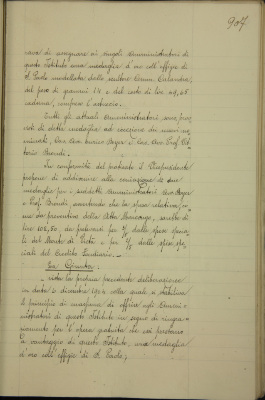 907
cava di assegnare ai singoli Amministratori di
questo Istituto una medaglia d'oro coll'effigie di
S. Paolo modellata dallo scultore Comm. Calandra,
del peso di grammi 14 e del costo di lire 49,65
cadauna, compreso l'astuccio.
Tutti gli attuali Amministratori sono
della medaglia ad eccezione dei nuovi
Cav. Avv. e Cav. Avv. Prof. Vit-
torio Brondi.
In conformità del praticato il Vicepresidente
propone di addivenire alla coniazione di due
medaglie per i suddetti Amministratori
e Prof. Brondi, avvertendo che la spesa relativa, giu-
sta da preventivo della Ditta, sarebbe di
lire 108,50, da prelevarsi per 3/5 dalle spese spe-
ciali del Monte di Pietà e per 2/5 dalle spese spe-
ciali del Credito Fondiario.
La Giunta:
vista la propria precedente deliberazione
in data 5 dicembre 1904 colla quale si stabiliva
il principio di massima di offrire agli Ammi-
nistratori di questo Istituto in segno di ringra-
ziamento per l'opera gratuita da essi prestata
a vantaggio di questo Istituto, una medaglia
d'oro coll'effigie di S. Paolo;